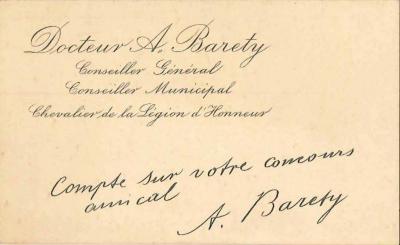 Docteur A. Barety
Conseiller Général
Conseiller Municipal
Chevalier de la Légion d'Honneur
Compte sur votre concours
amical
A. Barety